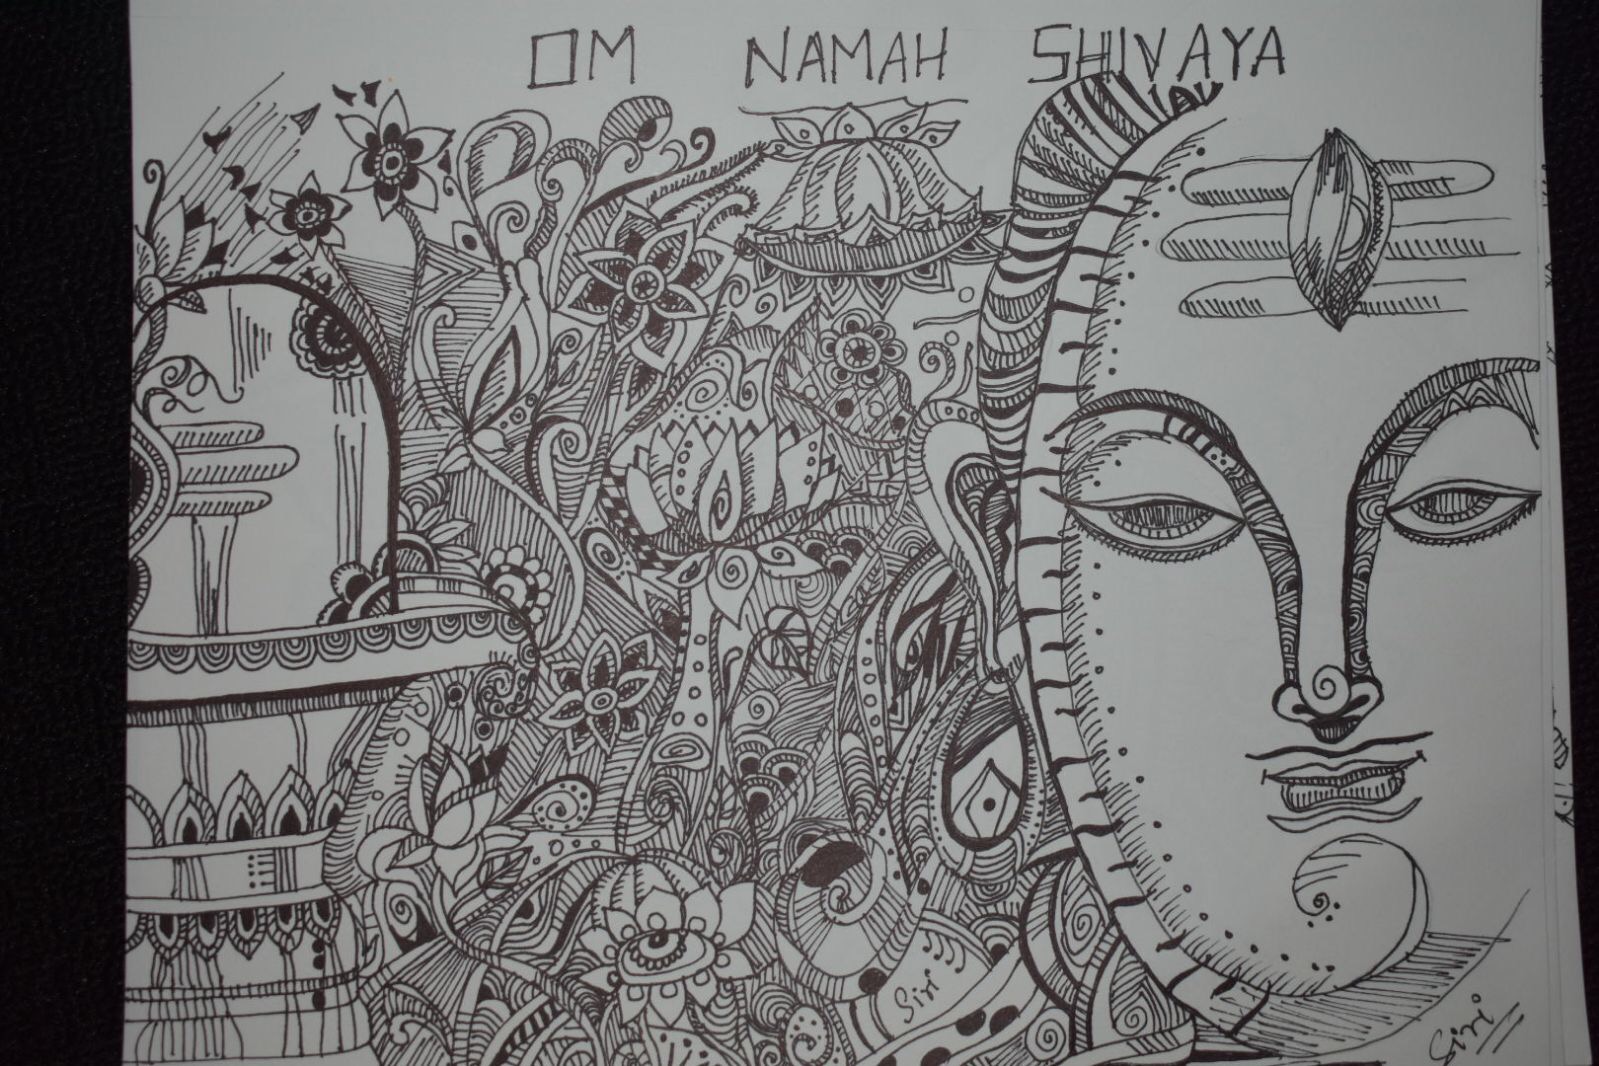 OM NAMAH SHIVAYA
Siri
Siri